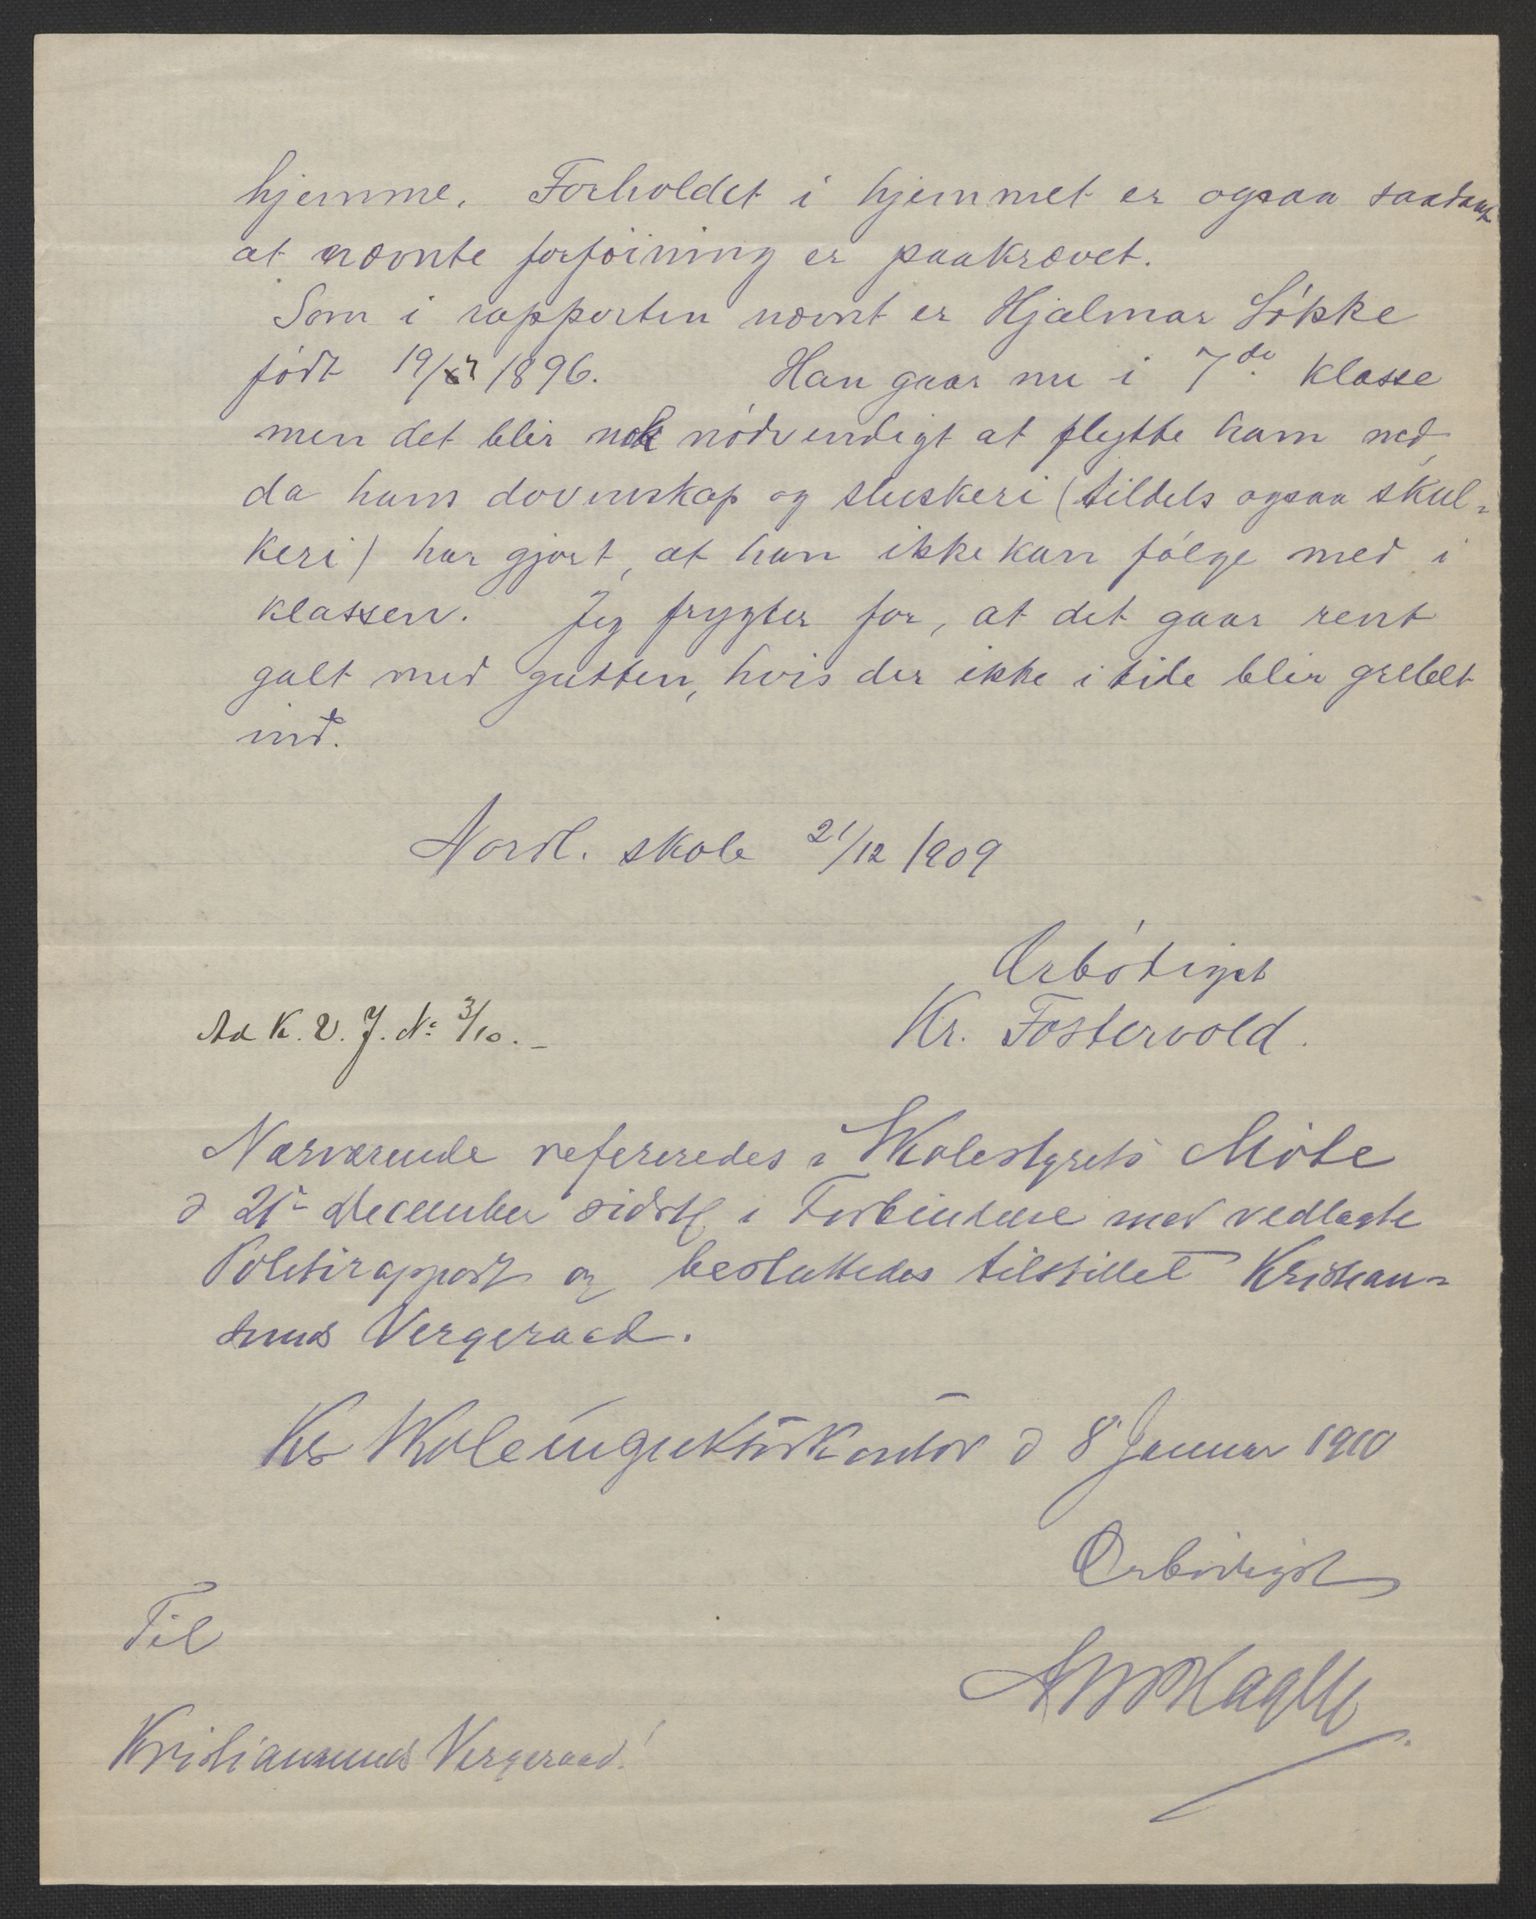 hjemme. Forholdet i hjemmet er ogsaa saadant
at nævnte forføining er paakrævet.
Som i rapporten nævnt er Hjalmar Løkke
født 19/ 1896. Han gaar nu i 7de klasse
men det blir nok nødvendigt at flytte ham ned,
da hans dovenskap og sluskeri (tildels ogsaa skul-
keri) har gjort, at han ikke kan følge med i
klassen. Jeg frygter for, at det gaar rent
galt med gutten, hvis der ikke i tide blir grebet
ind.
Nordl. skole 21/12 1909
Ærbødigst
Kr. Fostervold.
Ad K. V. J. No 3/10. -
Nærværende refereredes i Skolestyrets Møte
d 21 December sidstl. i Forbindelse med vedlagte
Politirapport og besluttedes tilstillet Kristian-
sunds Vergeraad.
Ks Skoleinspektørkontor d 8 Januar 1910
Ærbødigst
Til
Kristiansunds Vergeraad!